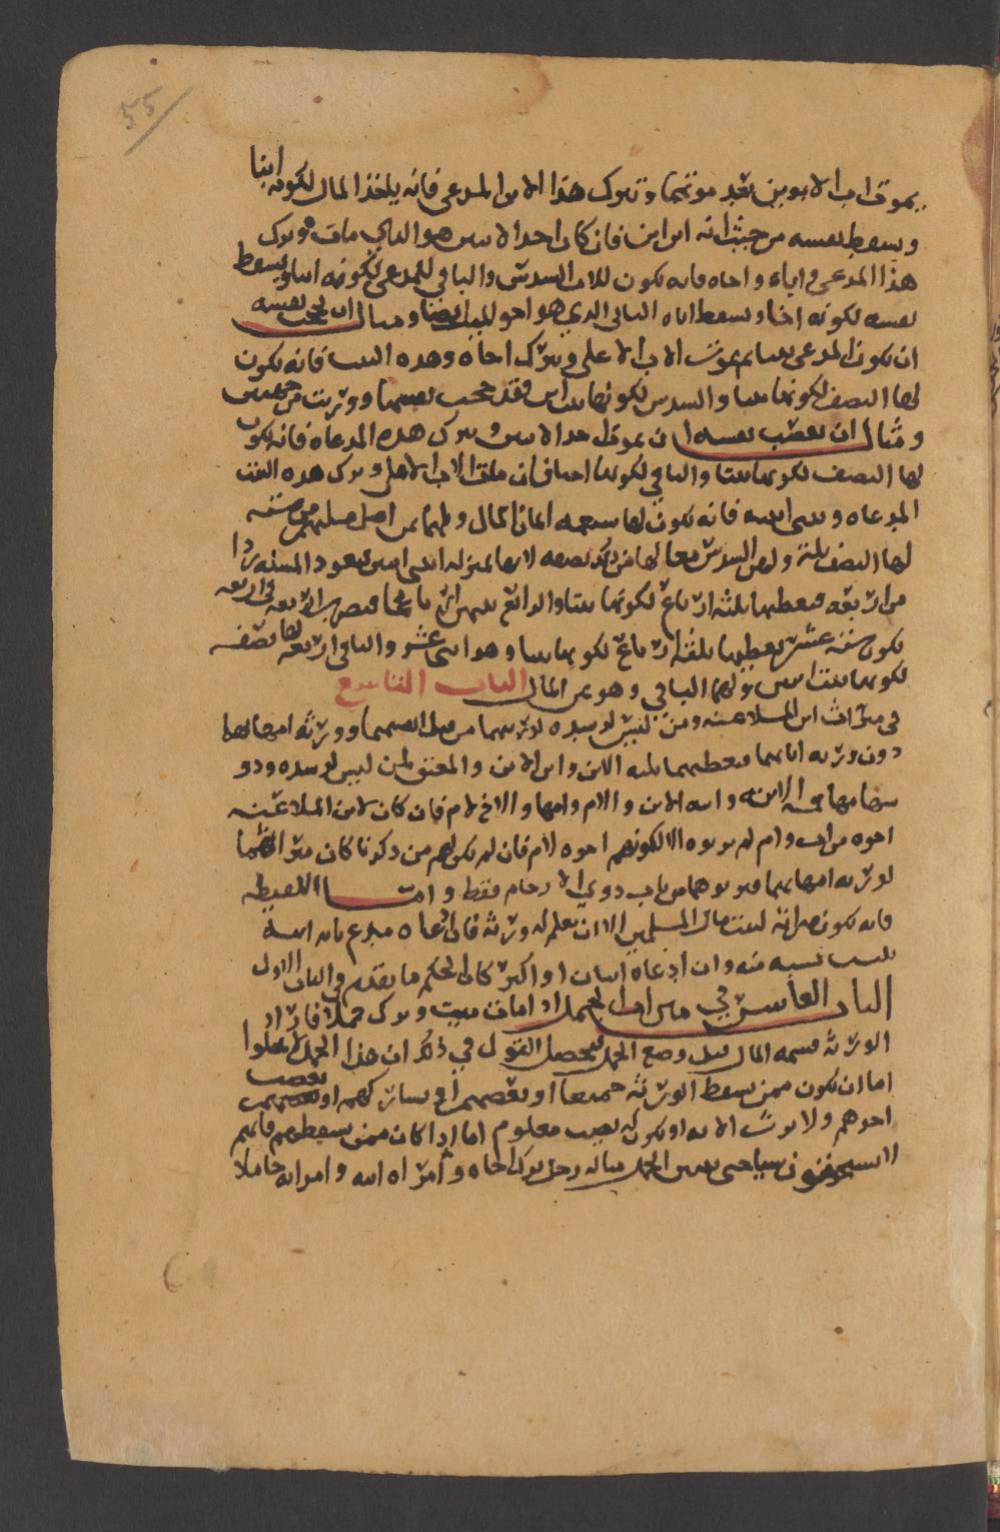 55
يموت اب الابوين بعد موتهما وترك هذا الابن المدعى فانه ياخذ المال لكونه ابنا
ويسقط نفسه من حيث انه ابن ابن فان كان احد الابنين هو الذي مات وترك
هذا المدعى واباه واخاه فانه يكون للاب السدس والباقي للمدعى لكونه ابنا ويسقط
نفسه لكونه اخا ويسقط اباه الثاني الذي هو اخو الميت ايضا ومثال ان يحجب نفسه
ان يكون المدعى بنتا ثم يموت الاب الاعلى ويترك اخاه وهذه البنت فانه يكون
لها النصف لكونها بنتا والسدس لكونها بنت ابن فقد حجب نفسها وورثت من جهتين
ومثال ان يعصب نفسه ان يموت احد الابنين ويترك هذه المدعاه فانه يكون
لها النصف لكونها بنتا والباقي لكونها اختا فان مات الاب الاعلى وترك هذه البنت
المدعاه وبنتي ابنه فانه يكون لها سبعة اثمان المال ولهما ثمن اصل مسلتهم من سته
لها النصف ثلثة ولهن السدس معا لها من ذلك نصفه لانها بمنزلة ابنتي ابنين فتعود المسئلة ردا
من اربعة فنعطيها ثلثة ارباع لكونها بنتا والرابع بينهن ارباعا فنضرب اربعه في اربعه
يكون ستة عشر نعطيها ثلثة ارباع لكونها بنتا وهو اثنا عشر والباقي اربعة لها نصفه
لكونها بنت ابنين ولهما الباقي وهو ثمن المال الباب التاسع
في ميراث ابن الملاعنه ومن ليس لرشده لا يرثهما من قبل ابيهما وورثة امهما لهما
دون ورثه ابائهما فنعطيهما بمثله الابن وابن الابن والمعتق لمن ليس لرشده وذو
سهامهما هي الابنه وابنه الابن والام وامها والاخ لام فان كان لابن الملاعنه
اخوه من اب وام لم يرثوه الا لكونهم اخوه لام فان لم يكن لهم من ذكرنا كان ميراثهما
لورثه امهاتهما فيرثوهما من باب ذوي الارحام فقط واما اللقيطه
فانه يكون ميراثه لبيت مال المسلمين الا ان يعلم له ورثه فان ادعاه مدع بانه ابنه
ثبت نسبه منه وان ادعاه اثنان او اكثر كان الحكم ما تقدم في الباب الاول
الباب العاشر في ميراث الحمل اذا مات ميت وترك حملا فاراد
الورثه قسمه المال قبل وضع الحمل فحصل القول في ذلك ان هذا الحمل لا يخلوا
اما ان يكون ممن يسقط الورثه جميعا او بعضهم او يشاركهم او يعصب
اخوهم ولا يرث الا به او يكون له نصيب معلوم اما اذا كان ممن يسقطهم فانهم
لا يستحقون شيا حتى يتبين الحمل مثاله رجل ترك اخاه وامراه ابنه وامراته حاملا